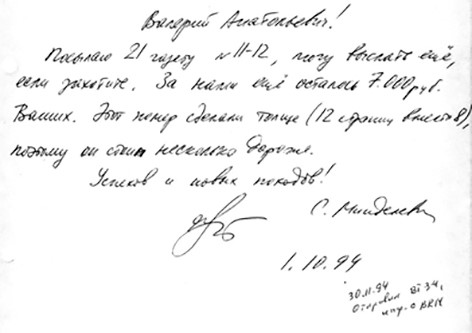 Валерий Анатольевич!
Посылаю 21 газету №11-12, могу выслать ещё,
если захотите. За нами ещё осталось 7.000 руб.
Ваших. Этот номер сделали толще (12 страниц вместо 8)
поэтому он стоит несколько дороже.
Успехов и новых походов!
С. Минделевич
1.10.94
30.11.94
Отправил